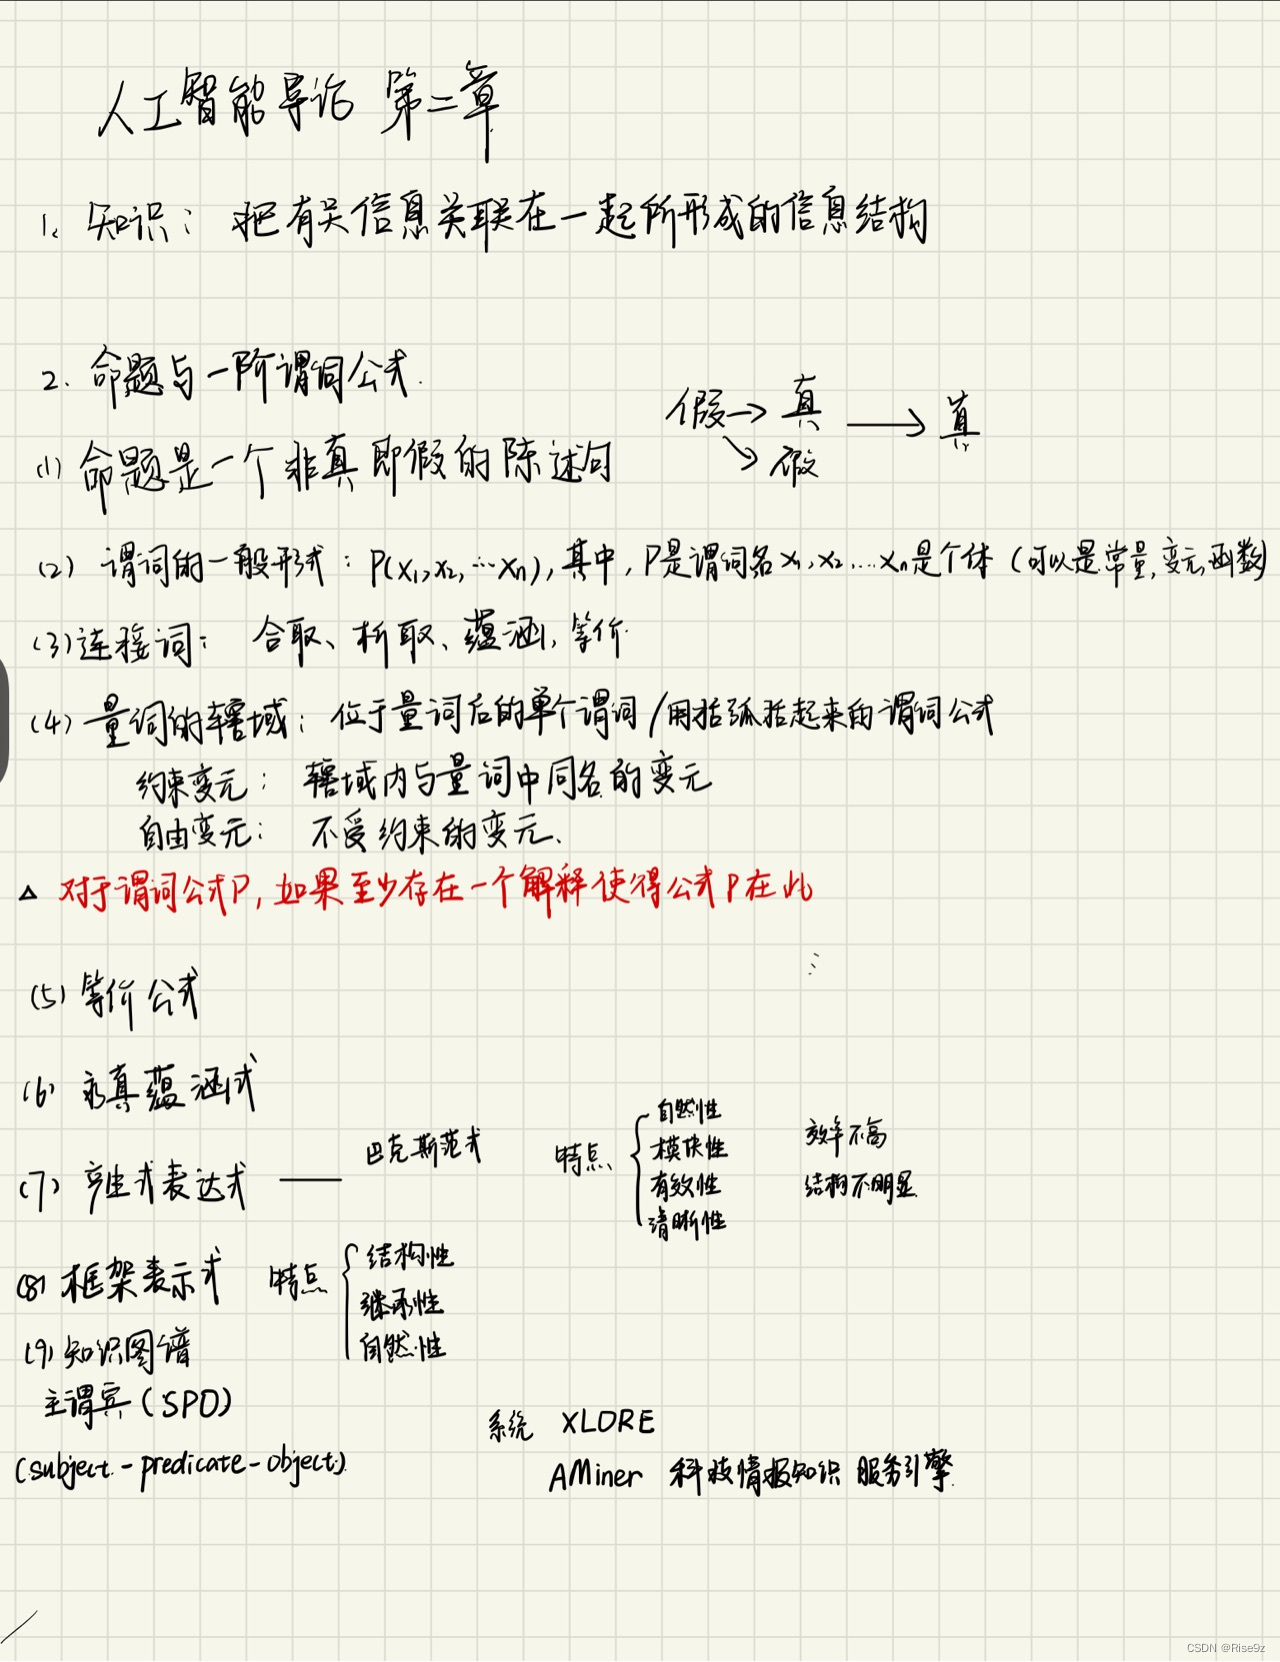 人工智能导论 第二章
1、知识：把有关信息关联在一起所形成的信息结构
2. 命题与一阶谓词公式.
假→真 → 真
↘假
(1) 命题是一个非真即假的陈述句
(2) 谓词的一般形式：P(x₁,x₂,…xₙ),其中，P是谓词名x₁,x₂…xₙ是个体（可以是常量,变元,函数)
(3)连接词：合取、析取、蕴涵,等价.
(4) 量词的辖域：位于量词后的单个谓词/用括弧括起来的谓词公式
约束变元：辖域内与量词中同名的变元
自由变元：不受约束的变元.
△ 对于谓词公式P,如果至少存在一个解释使得公式P在此
(5) 等价公式
(6) 永真蕴涵式
(7) 产生式表达式 —— 巴克斯范式
特点 { 自然性
模块性
有效性
清晰性
效率不高
结构不明显
(8) 框架表示式 特点 { 结构性
继承性
自然性
(9) 知识图谱
主谓宾(SPO)
(subject-predicate-object)
系统 XLORE
AMiner 科技情报知识 服务引擎
CSDN @Rise9z